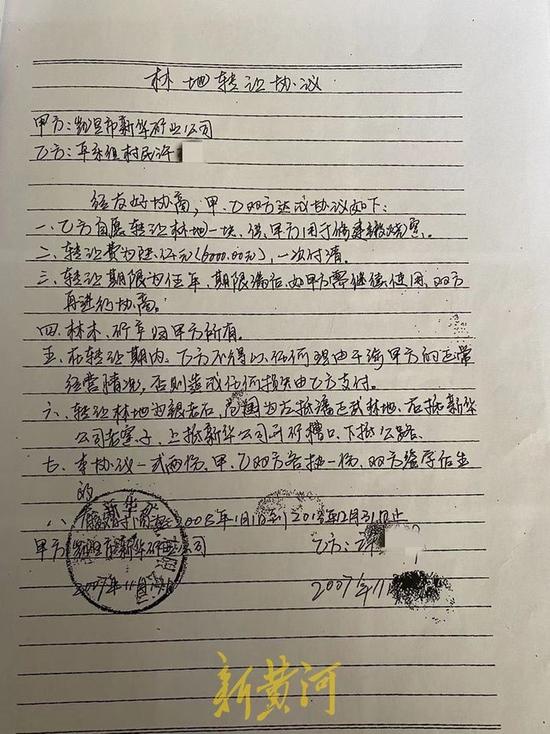 林地转让协议
甲方:凯里市新华矿业公司
乙方:平乐组村民许
经友好协商,甲、乙双方达成协议如下:
一、乙方自愿转让林地一块,供甲方用于修建煅烧窑。
二、转让费为陆仟元(6000.00元),一次付清。
三、转让期限为伍年,期限满后,如甲方需继续使用,双方
再进行协商。
四、林木、矿产归甲方所有。
五、在转让期内,乙方不得以任何理由干涉甲方的正常
经营情况,否则造成任何损失由乙方支付。
六、转让林地为 范围为左抵潘正武林地、右抵新华
公司老窑子、上抵新华公司开矿槽口、下抵公路。
七、本协议一式两份,甲、乙双方各执一份,双方签字后生
效
八、 年1月1日 12月31日止
甲方: 新华矿业公司
乙方:许
2007年11月
2007年11
新黄河